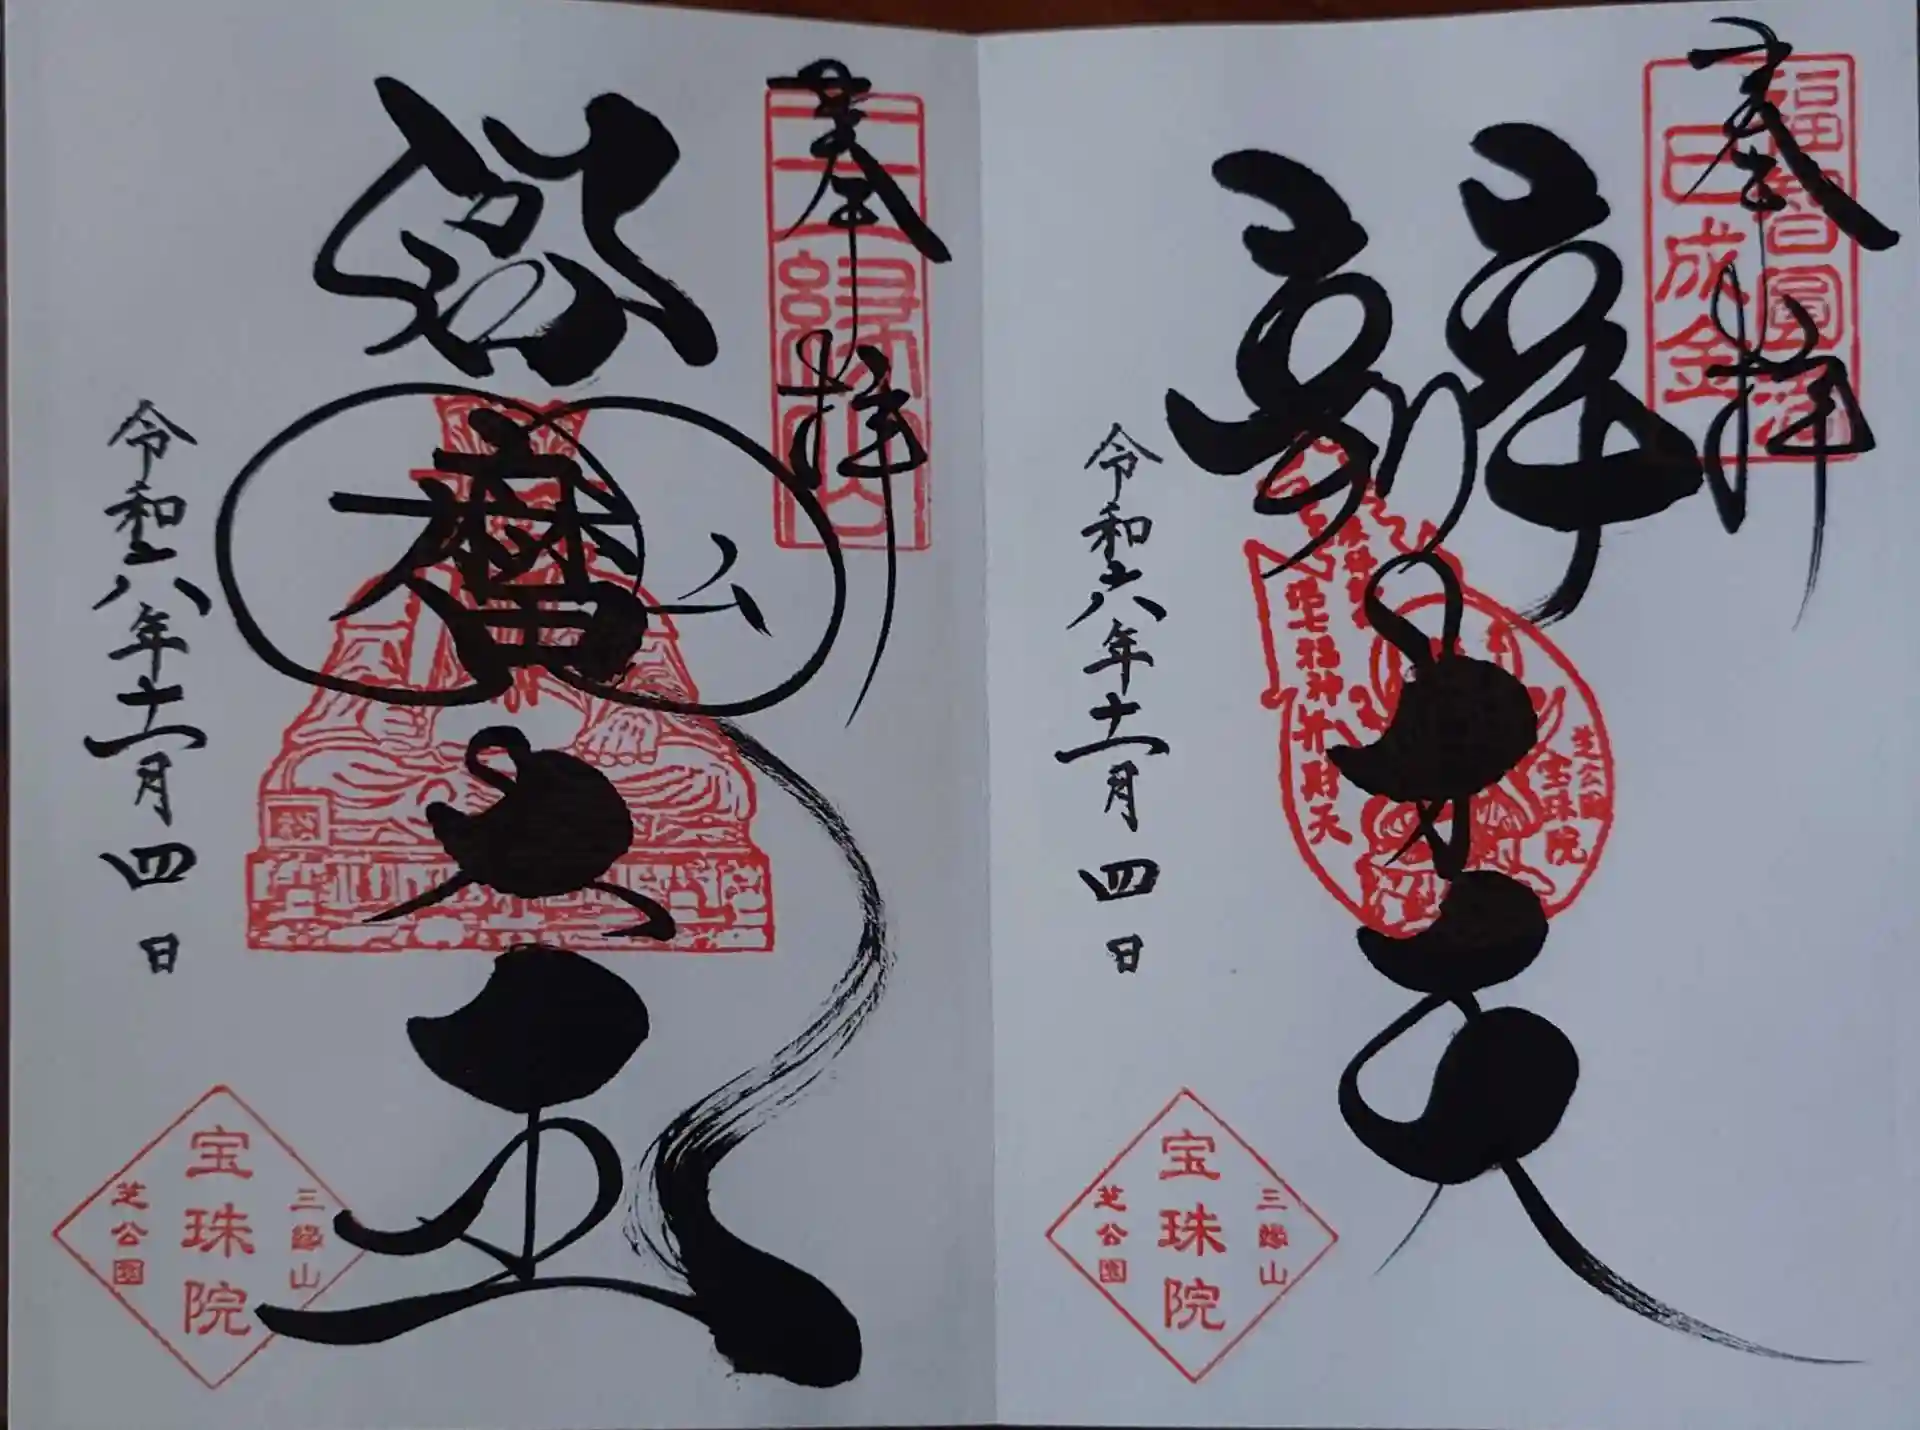 奉拝
福智圓満
巳成金
辯才天
港七福神弁財天
芝公園
宝珠院
令和六年十一月四日
三縁山
宝珠院
芝公園
奉拝
三縁山
閻魔大王
令和六年十一月四日
三縁山
宝珠院
芝公園